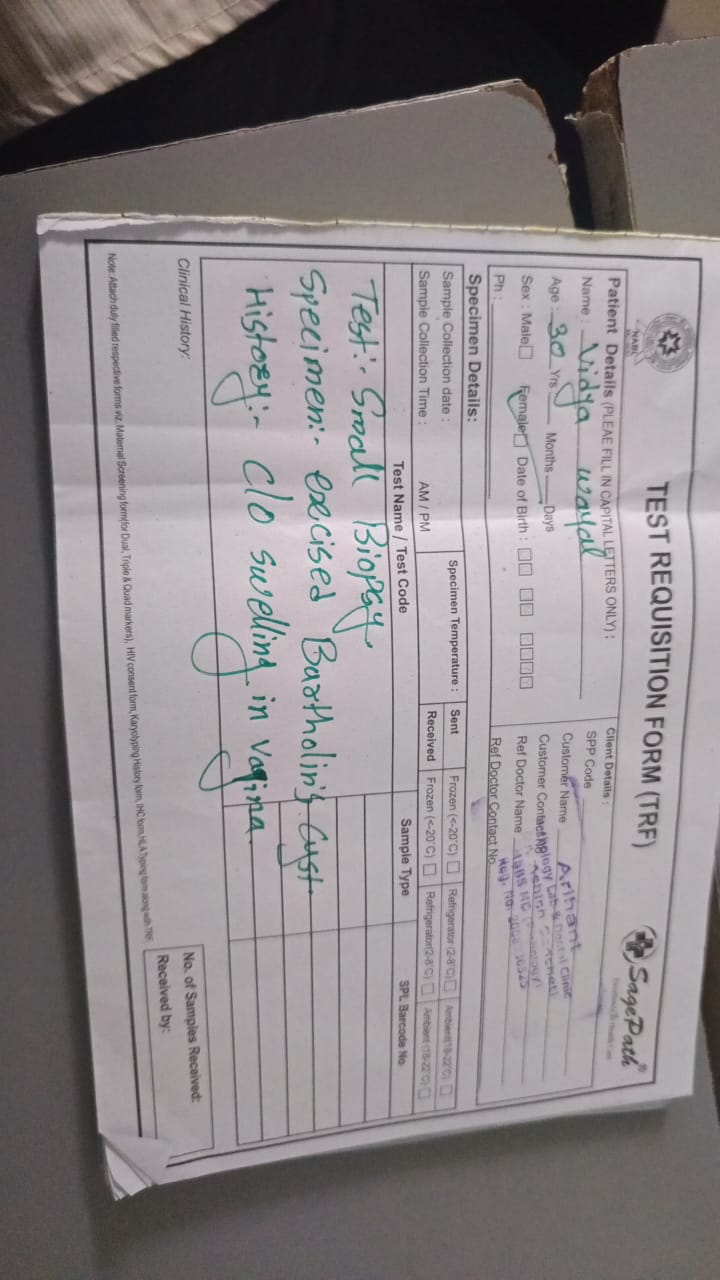 NABL
TEST REQUISITION FORM (TRF)
SagePath®
Patient Details (PLEAE FILL IN CAPITAL LETTERS ONLY) :
Name : Vidya wayal
Age : 30 Yrs Months Days
Sex : Male Female Date of Birth :
Ph :
Client Details :
SPP Code
Customer Name Arihant
Customer Contact
Ref Doctor Name
Ref Doctor Contact No.
Specimen Details:
Sample Collection date :
Sample Collection Time : AM / PM
Specimen Temperature :
Sent Frozen (<-20°C) Refrigerator (2-8°C) Ambient (18-22°C)
Received Frozen (<-20°C) Refrigerator (2-8°C) Ambient (18-22°C)
Test Name / Test Code Sample Type SPL Barcode No
Test:- Small Biopsy
Specimen:- excised Bartholin's Cyst.
History:- c/o swelling in vagina.
Clinical History:
No. of Samples Received:
Received by:
Note: Attach duly filled respective forms viz. Maternal Screening form(for Dual, Triple & Quad markers), HIV consent form, Karyotyping History form, IHC form, HLA Typing form along with TRF